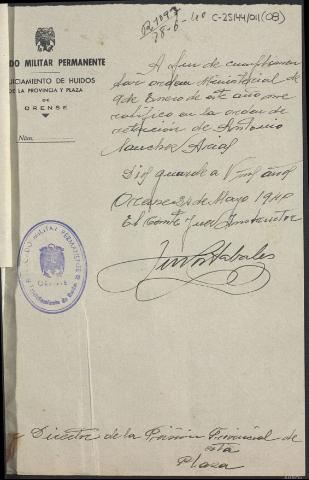 R 1097
28-6-40
C-25144/011(08)
DO MILITAR PERMANENTE
UICIAMIENTO DE HUIDOS
DE LA PROVINCIA Y PLAZA
DE
ORENSE
Núm.
A fin de cumplimentar
orden Ministerial de
9 de Enero de este año me
ratifico en la orden de
detención de Antonio
Sanchez Arias
Dios guarde a V. ms años
Orense 24 de Mayo 1940
El Comte Juez Instructor
DO MILITAR PERMANENTE
ORENSE
Enjuiciamiento de Huidos
Director de la Prisión Provincial de
esta
Plaza